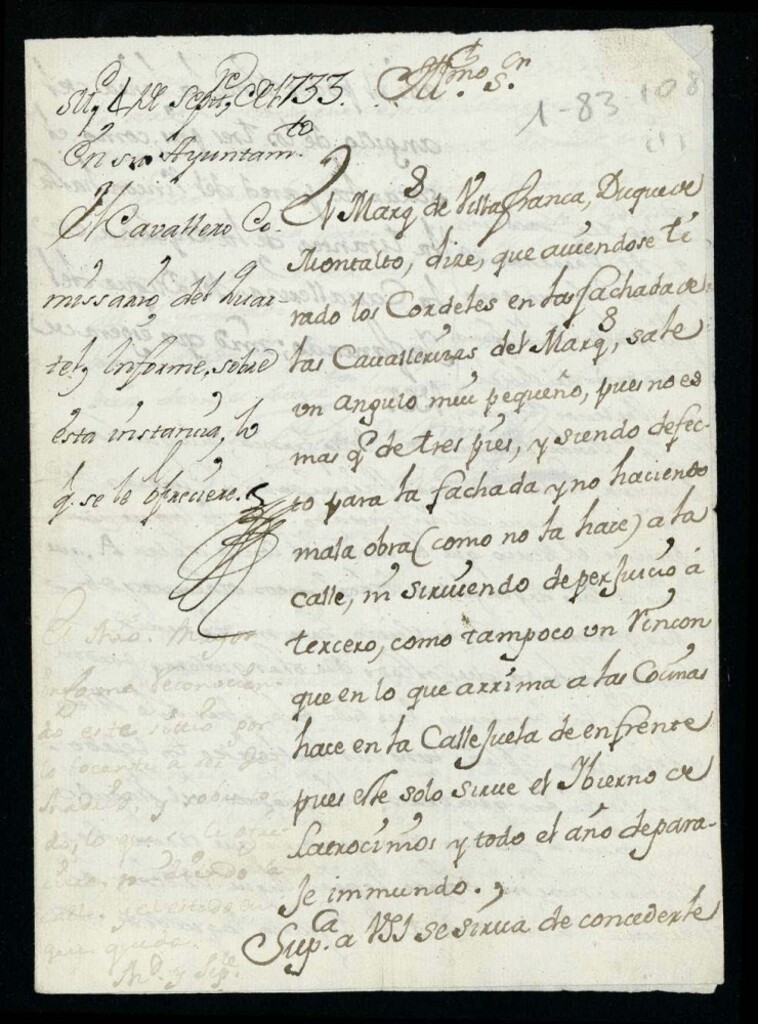 Yll.mo S.n
1-83 108
4 de sep.re de 1733.
En su Ayuntam.to
El Cavallero Co-
missario del Quar-
tel, Informe, sobre
esta instancia, lo
q. se le ofreciere.
El Marq.s de Villafranca, Duque de
Montalto, dize, que auiendose ti
rado los Cordeles en las fachadas de
las Cauallerizas del Marq.s, sale
un angulo mui pequeño, pues no es
mas q.e de tres pies, y siendo defec-
to para la fachada y no haciendo
mala obra (como no la hace) a la
calle, ni siruiendo de perjuicio à
tercero, como tampoco un Rincon
que en lo que arrima a las Cocinas
hace en la Callejuela de enfrente
pues este solo sirue el Ibierno de
Latrocinios y todo el año de para-
je immundo.
Sup.ca a VSI se sirua de concederle
El Mro. Mayor
Informe
este sitio por
lo tocante a